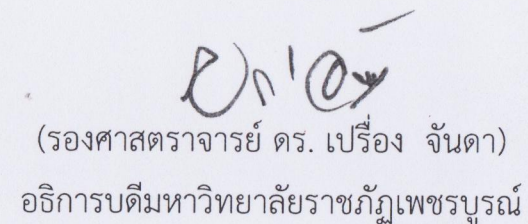 (รองศาสตราจารย์ ดร. เปรื่อง จันดา)
อธิการบดีมหาวิทยาลัยราชภัฏเพชรบูรณ์